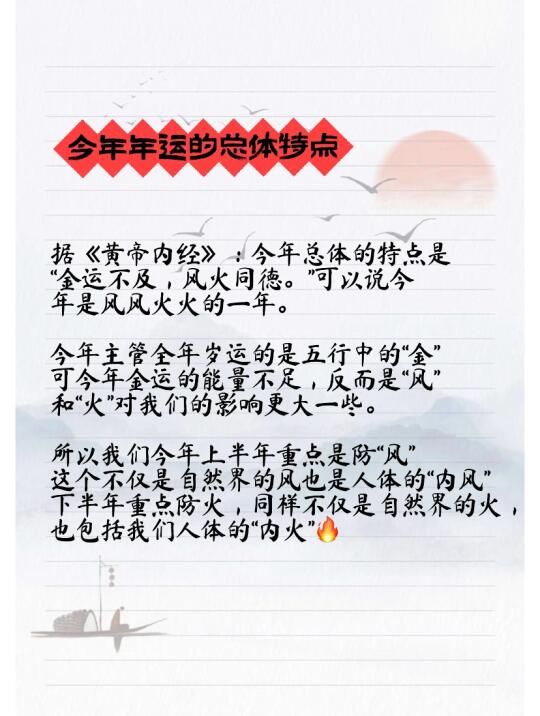 今年年运的总体特点
据《黄帝内经》：今年总体的特点是
“金运不及，风火同德。”可以说今
年是风风火火的一年。
今年主管全年岁运的是五行中的“金”
可今年金运的能量不足，反而是“风”
和“火”对我们的影响更大一些。
所以我们今年上半年重点是防“风”
这个不仅是自然界的风也是人体的“内风”
下半年重点防火，同样不仅是自然界的火，
也包括我们人体的“内火”🔥